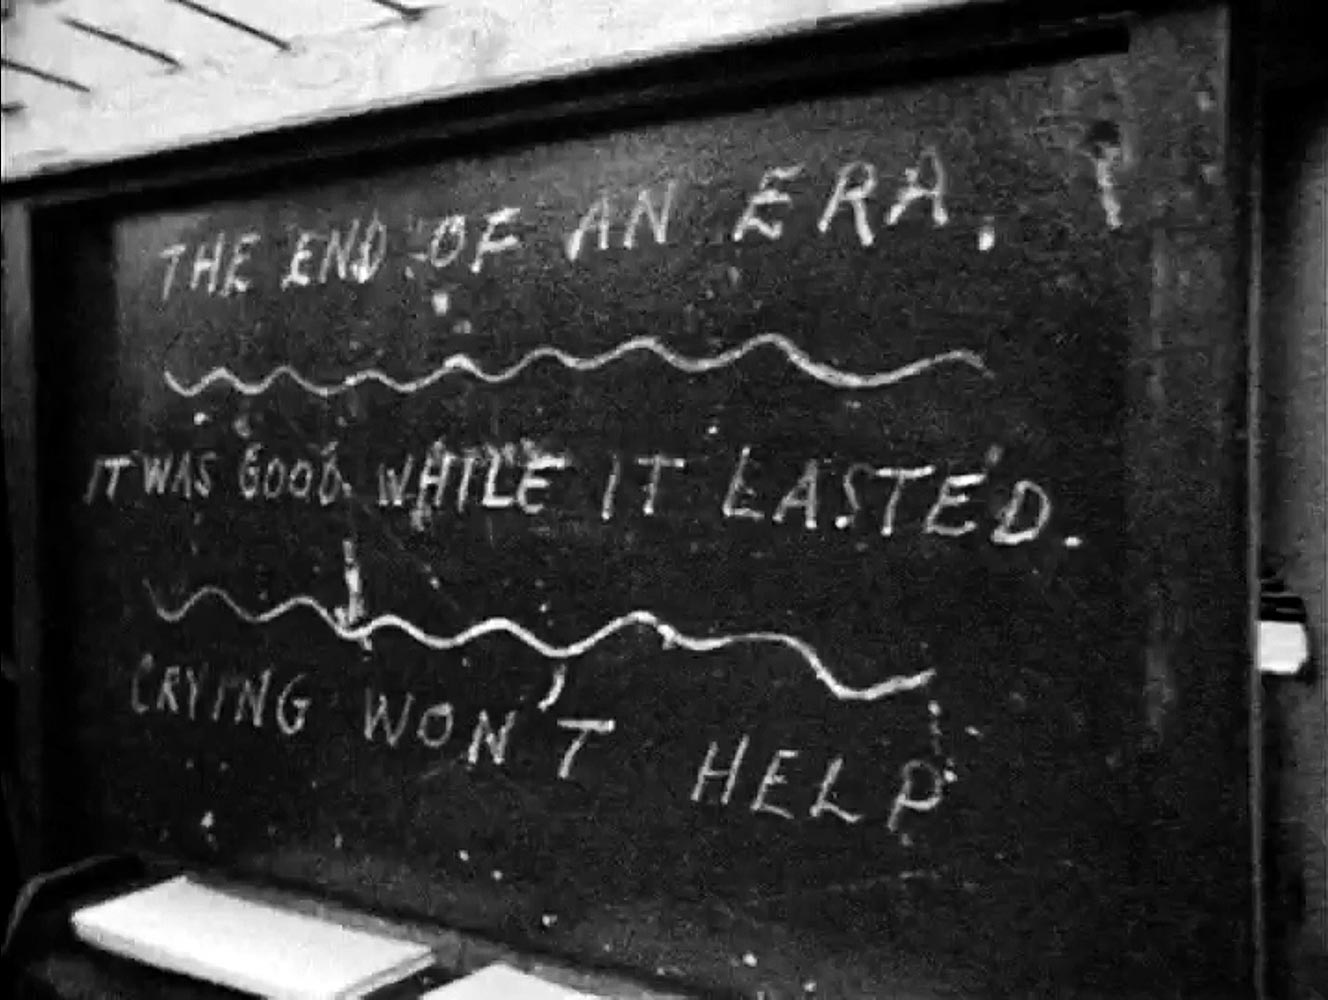 THE END OF AN ERA.
IT WAS GOOD WHILE IT LASTED.
CRYING WON'T HELP